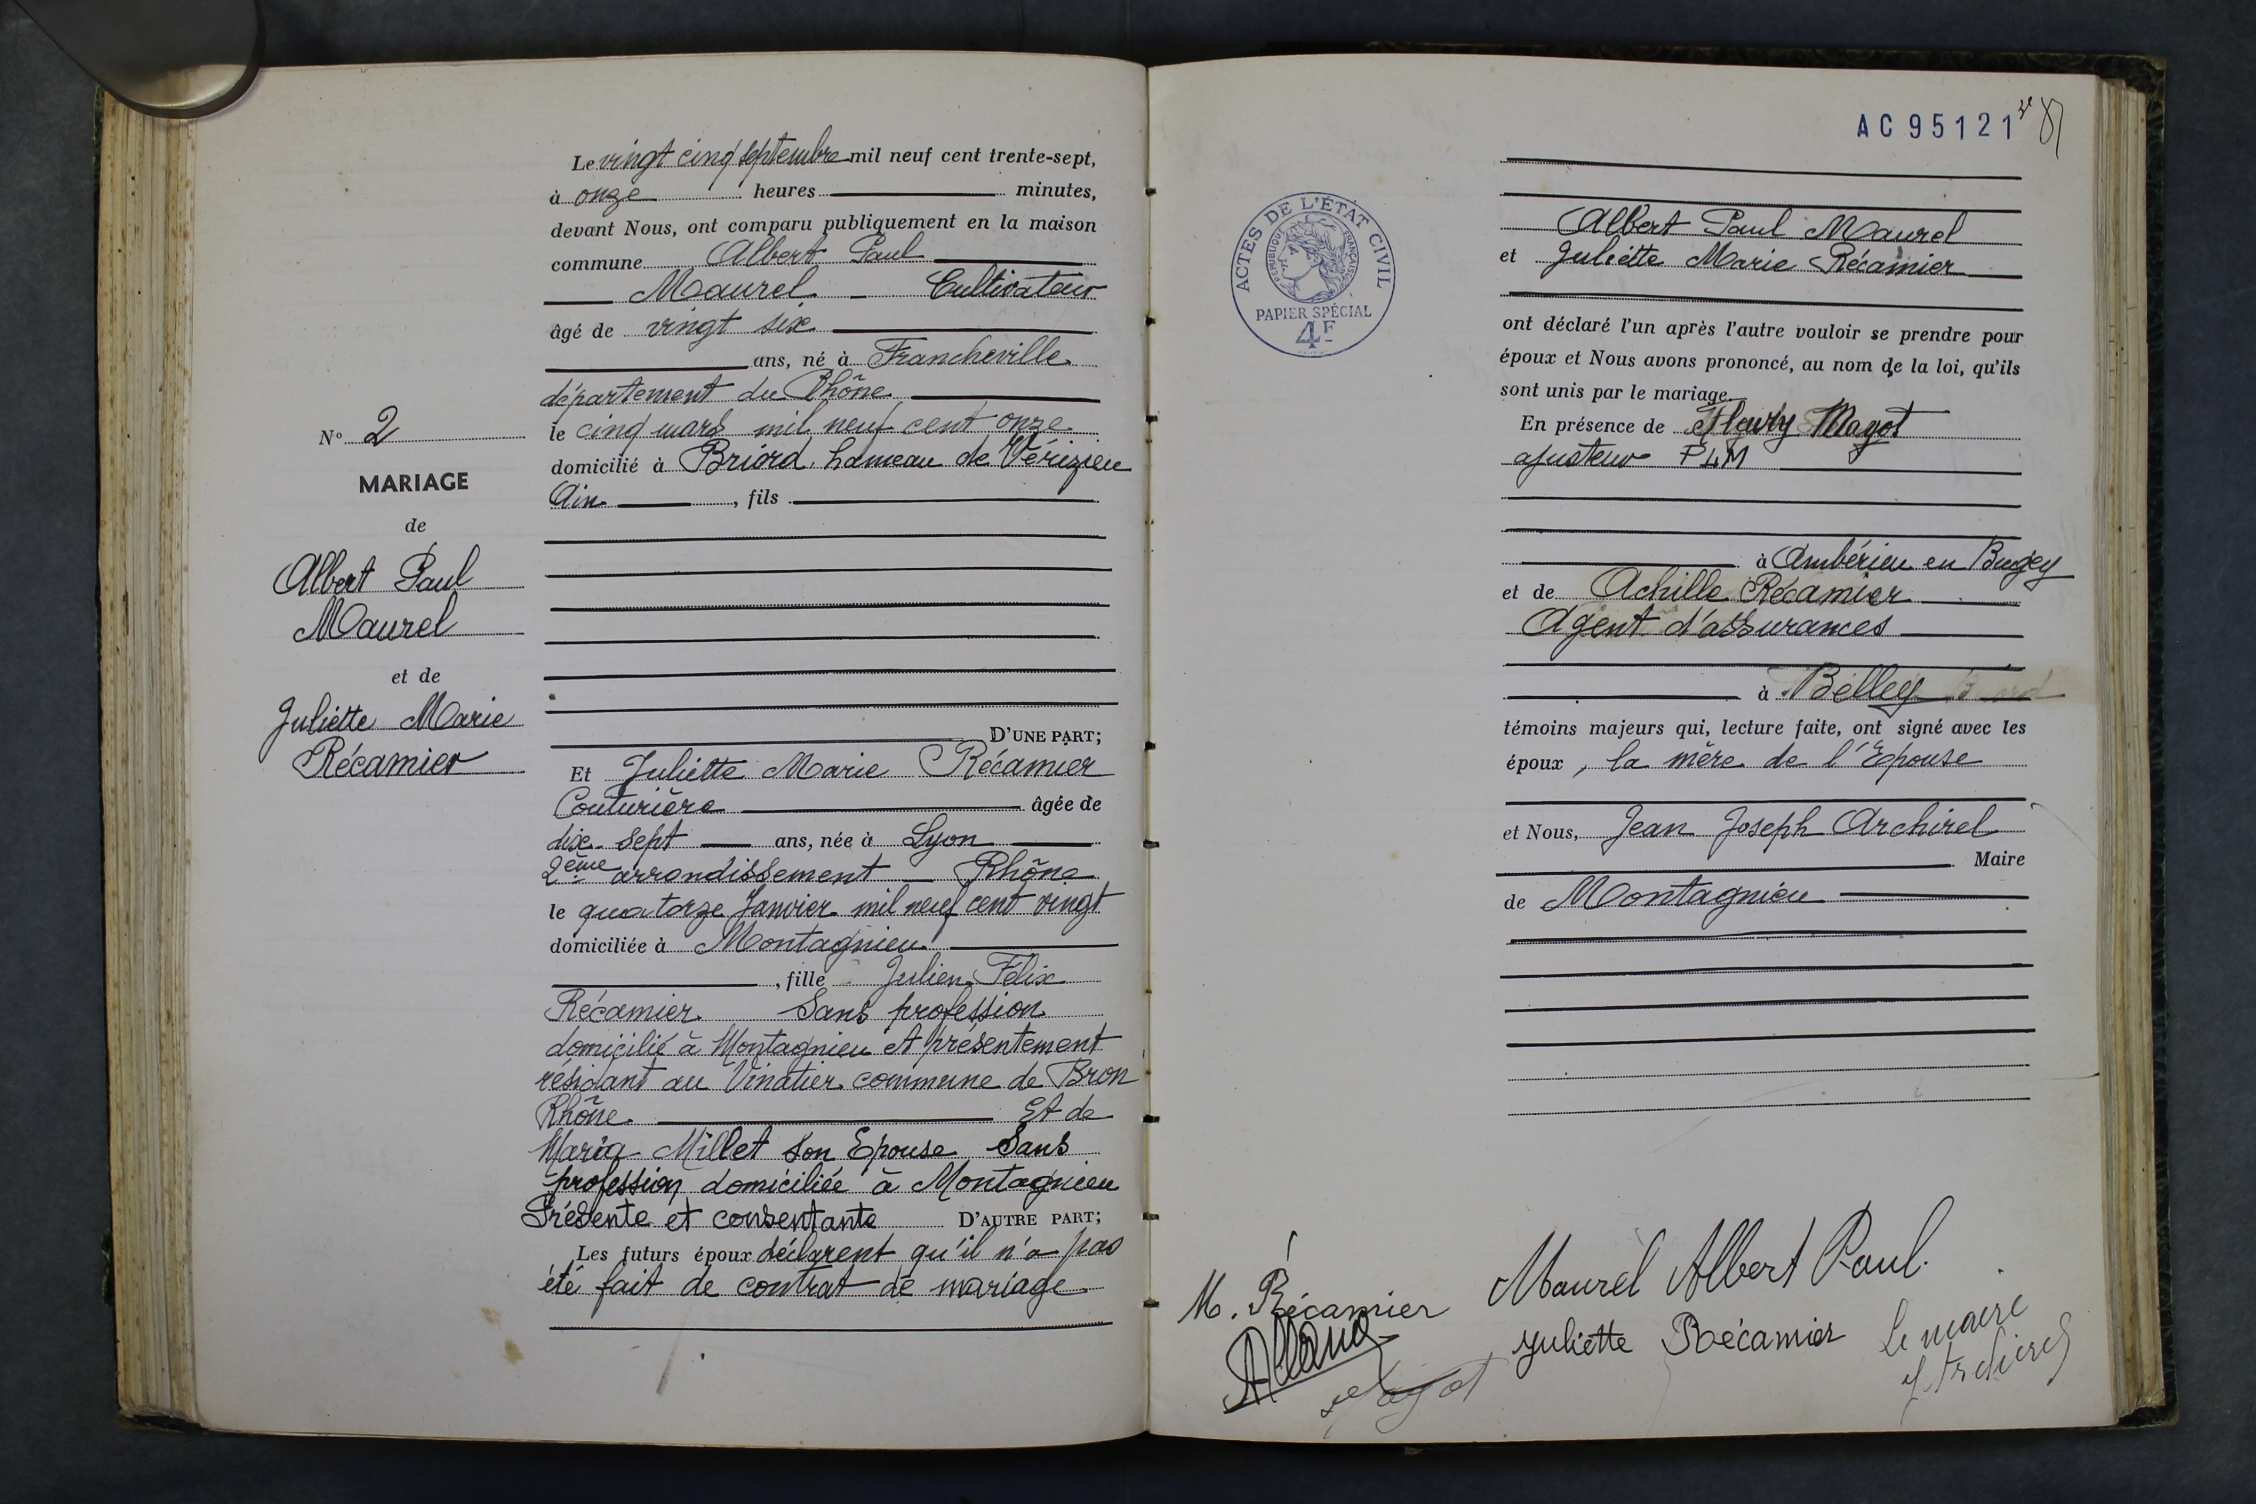 Le vingt cinq septembre mil neuf cent trente-sept,
à onze heures minutes,
devant Nous, ont comparu publiquement en la maison
commune Albert Paul
Maurel Cultivateur
âgé de vingt six
ans, né à Francheville
département du Rhône
le cinq mars mil neuf cent onze
domicilié à Briord, hameau de Vérizieu
Ain, fils
D'UNE PART;
Et Juliette Marie Récamier
Couturière âgée de
dix-sept ans, née à Lyon
2ème arrondissement Rhône
le quatorze Janvier mil neuf cent vingt
domiciliée à Montagnieu
, fille Julien Félix
Récamier Sans profession
domicilié à Montagnieu et présentement
résidant au Vinatier commune de Bron
Rhône. Et de
Maria Millet son Epouse Sans
profession domiciliée à Montagnieu
Présente et consentante D'AUTRE PART;
Les futurs époux déclarent qu'il n'a pas
été fait de contrat de mariage
N° 2
MARIAGE
de
Albert Paul
Maurel
et de
Juliette Marie
Récamier
AC 95121
ACTES DE L'ÉTAT CIVIL
RÉPUBLIQUE FRANÇAISE
PAPIER SPÉCIAL
4F
Albert Paul Maurel
et Juliette Marie Récamier
ont déclaré l'un après l'autre vouloir se prendre pour
époux et Nous avons prononcé, au nom de la loi, qu'ils
sont unis par le mariage.
En présence de Fleury Magot
ajusteur PLM
à Ambérieu en Bugey
et de Achille Récamier
Agent d'assurances
à Belley
témoins majeurs qui, lecture faite, ont signé avec les
époux, la mère de l'Epouse
et Nous, Jean Joseph Archirel
Maire
de Montagnieu
M. Récamier
Maurel Albert Paul.
Juliette Récamier
Le maire
J Archirel